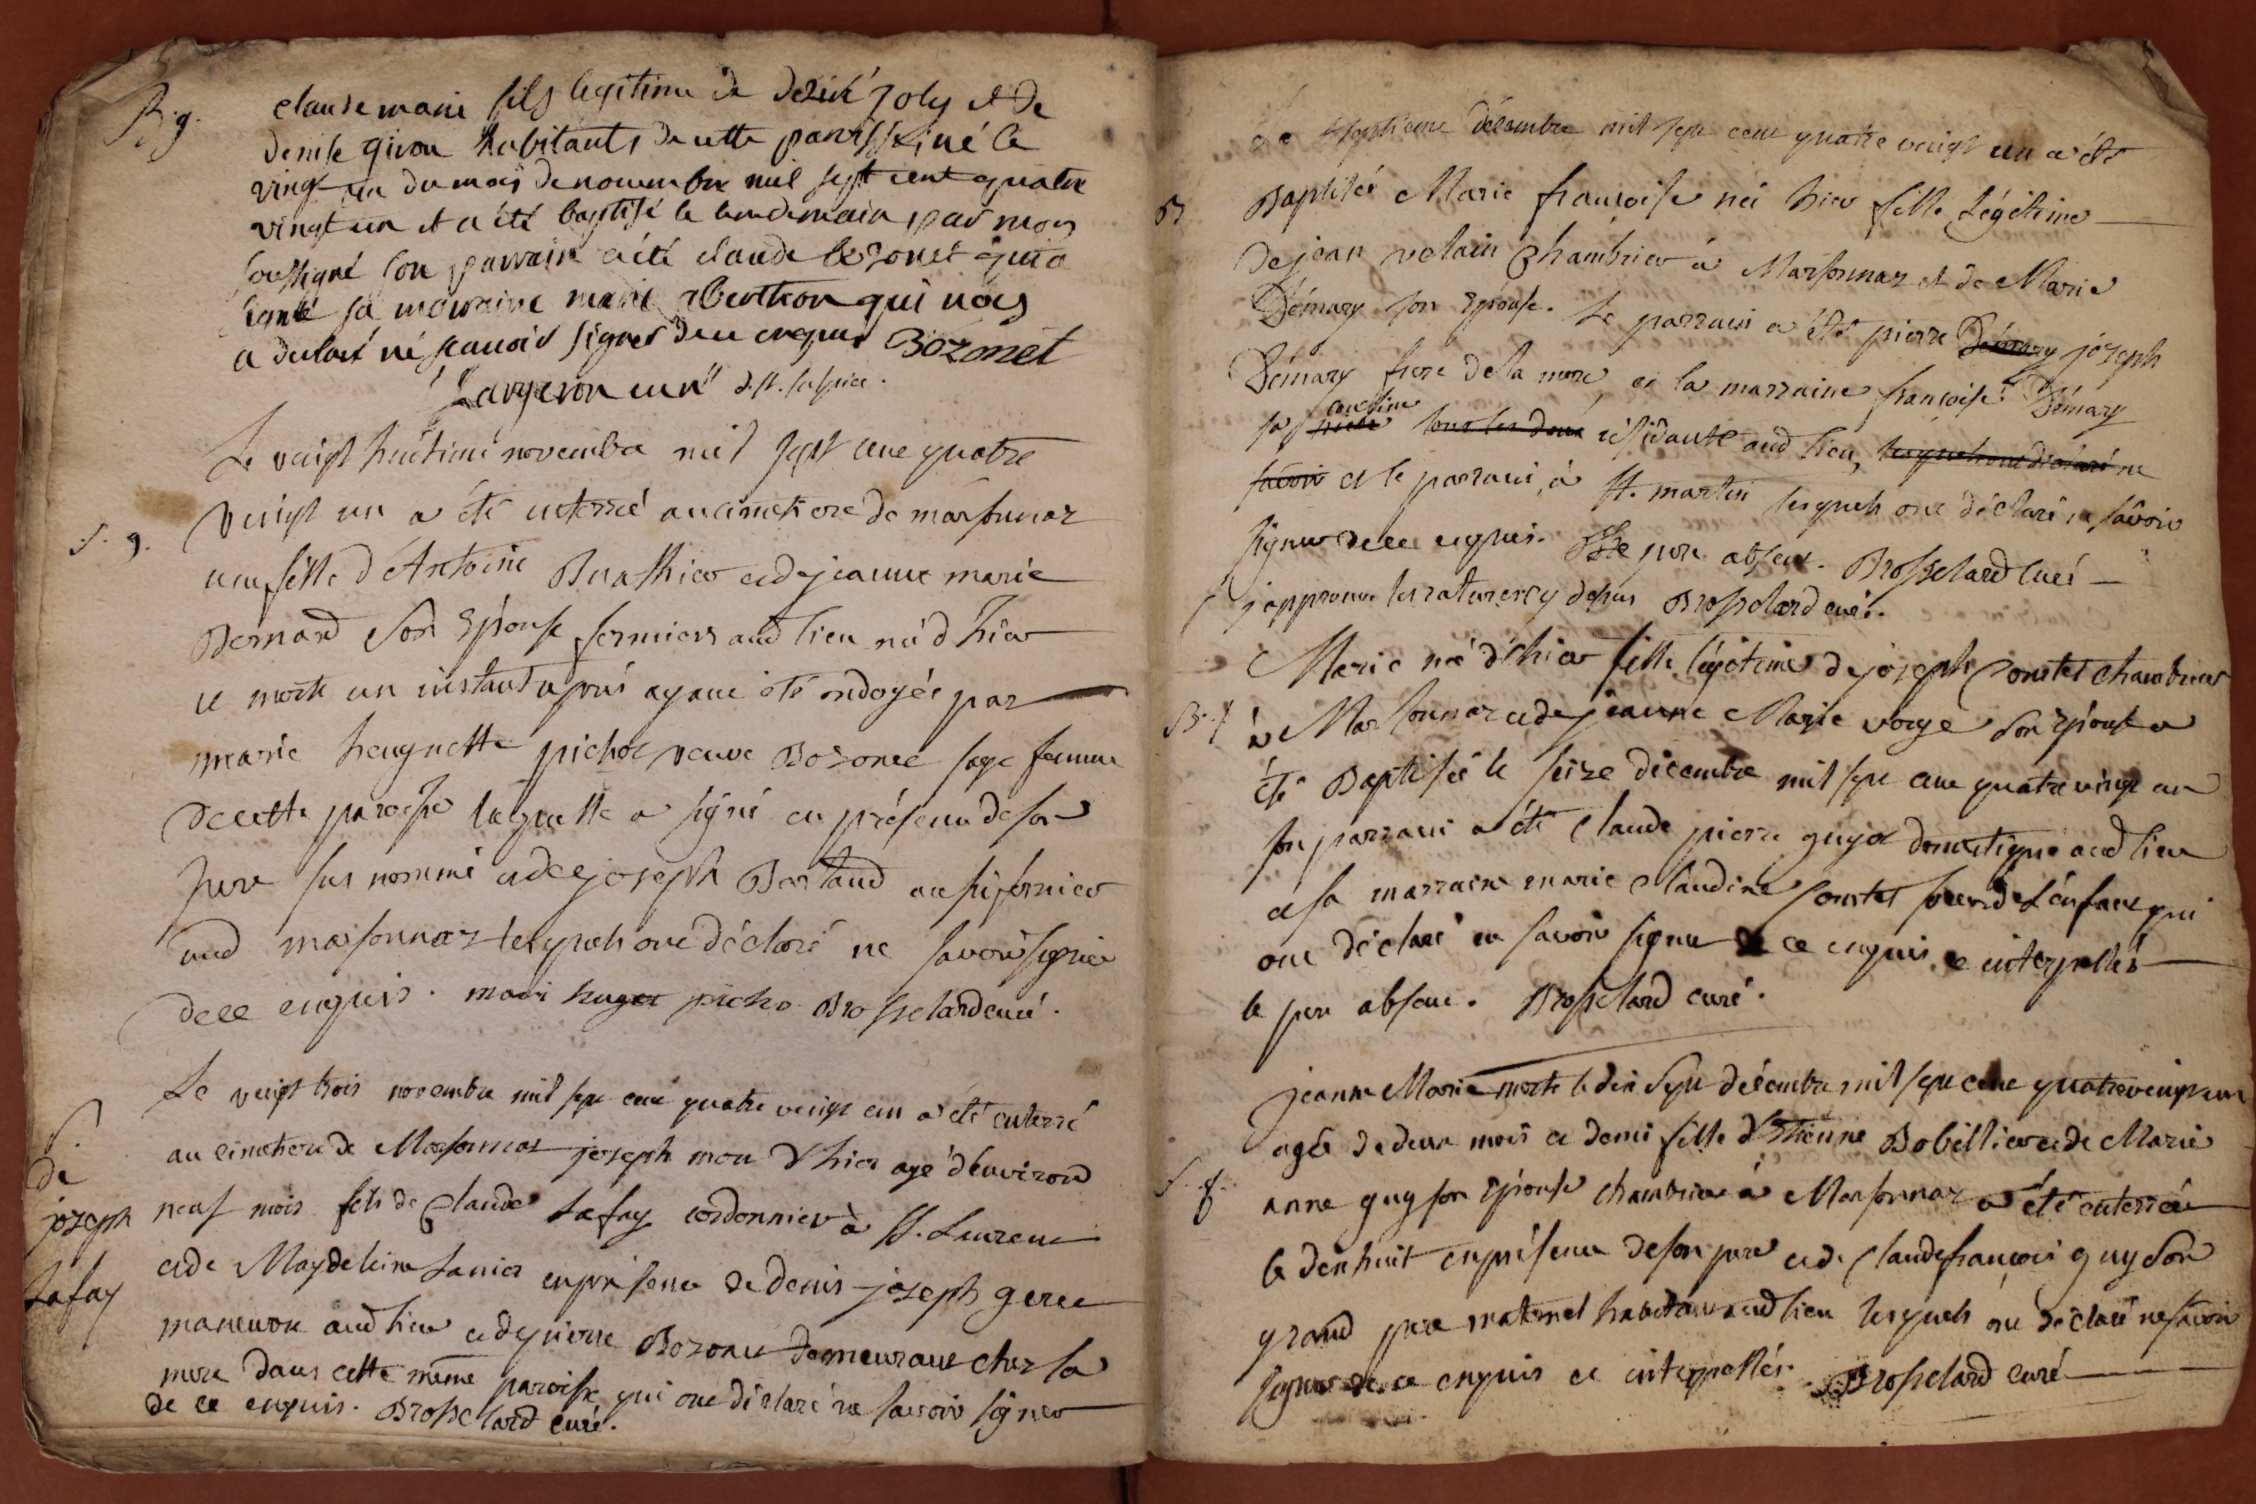 B. g.
claude marie fils legitime de Desiré joly et de
denise givon habitants de cette parroisse né le
vingt un du mois de novembre mil sept cent quatre
vingt un et a été baptisé le lendemain par moy
soussigné son parrain a été claude bozonet qui a
signé sa marraine marie qui nous
a declaré ne scauoir signer de ce enquis Bozonet
Largeron curé
S. g.
Le vingt huitieme novembre mil sept cent quatre
vingt un a été enterré au cimetiere de marsonnaz
une fille d'Antoine Buathier et de jeanne marie
Bernard son Epouse fermiers aud lieu née d'hier
et morte un instant aprés ayant été ondoyée par
marie hugnette pichot veuve Bozonet sage femme
de cette paroisse laquelle a signé en présence de son
pere sus nommé et de joseph Berland aussi fermier
aud marsonnaz lesquels ont déclaré ne savoir signer
de ce enquis. mari huget picho Brosselard curé.
S.
de
joseph
Lafay
Le vingt trois novembre mil sept cent quatre vingt un a été enterré
au cimetiere de Marsonnas joseph mort d'hier agé d'environ
neuf mois fils de Claude Lafay cordonnier à St. Laurent
et de Magdeleine Janier en présence de denis joseph
manuvre aud lieu et de pierre Bozonet demeurant chez sa
mere dans cette même paroisse qui ont déclaré ne savoir signer
de ce enquis. Brosselard curé.
B
Le septieme décembre mil sept cent quatre vingt un a été
Baptisée Marie francoise née hier fille Légitime
de jean velain Chambrier à Marsonnaz et de Marie
Démary son Epouse. Le parrain a été pierre Démary joseph
Démary frere de la mere, et la marraine francoise Démary
sa niece cousine tous les deux résidante aud lieu, lesquels ont déclaré ne
savoir et le parrain à St. martin lesquels ont déclaré ne savoir
signer de ce enquis. Le pere absent. Brosselard curé
j'approuve les ratures cy dessus Brosselard curé.
B. f
Marie née d'hier fille légitime de joseph Contet chambrier
à Marsonnaz et de jeanne Marie vorge son Epouse a
été Baptisée le seize décembre mil sept cent quatre vingt un
son parrain a été Claude pierre guyot domestique aud lieu
et sa marraine marie Claudine Contet soeur de L'enfant qui
ont déclaré ne savoir signer de ce enquis et interpellés
le pere absent. Brosselard curé.
S. f.
jeanne Marie morte le dix Sept décembre mil sept cent quatre vingt un
agée de deux mois et demi fille d'Etienne Bobillier et de Marie
anne guy son Epouse chambrier à Marsonnaz a été enterrée
le dix huit en présence de son pere et de Claude françois guy son
grand pere maternel habitant aud lieu lesquels ont déclaré ne savoir
signer de ce enquis et interpellés. Brosselard curé